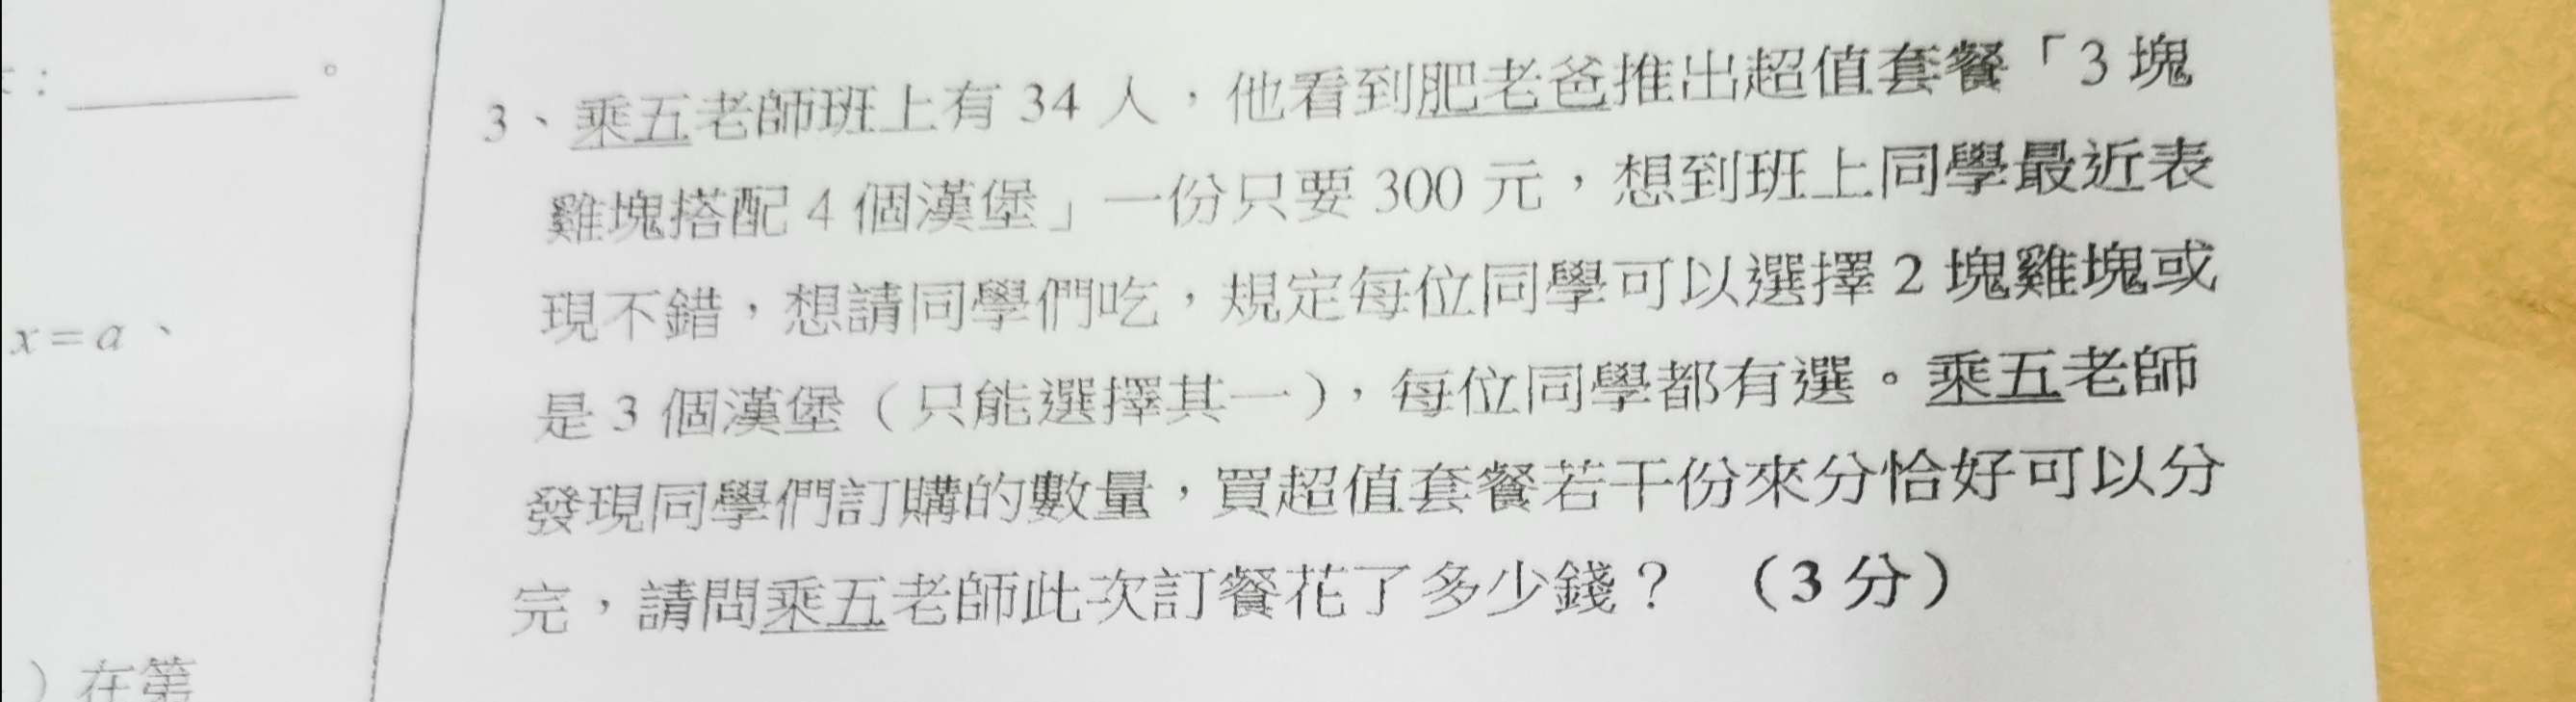 ：______。
x=a、
）在第
3、乘五老師班上有 34 人，他看到肥老爸推出超值套餐「3 塊
雞塊搭配 4 個漢堡」一份只要 300 元，想到班上同學最近表
現不錯，想請同學們吃，規定每位同學可以選擇 2 塊雞塊或
是 3 個漢堡（只能選擇其一），每位同學都有選。乘五老師
發現同學們訂購的數量，買超值套餐若干份來分恰好可以分
完，請問乘五老師此次訂餐花了多少錢？ （3 分）